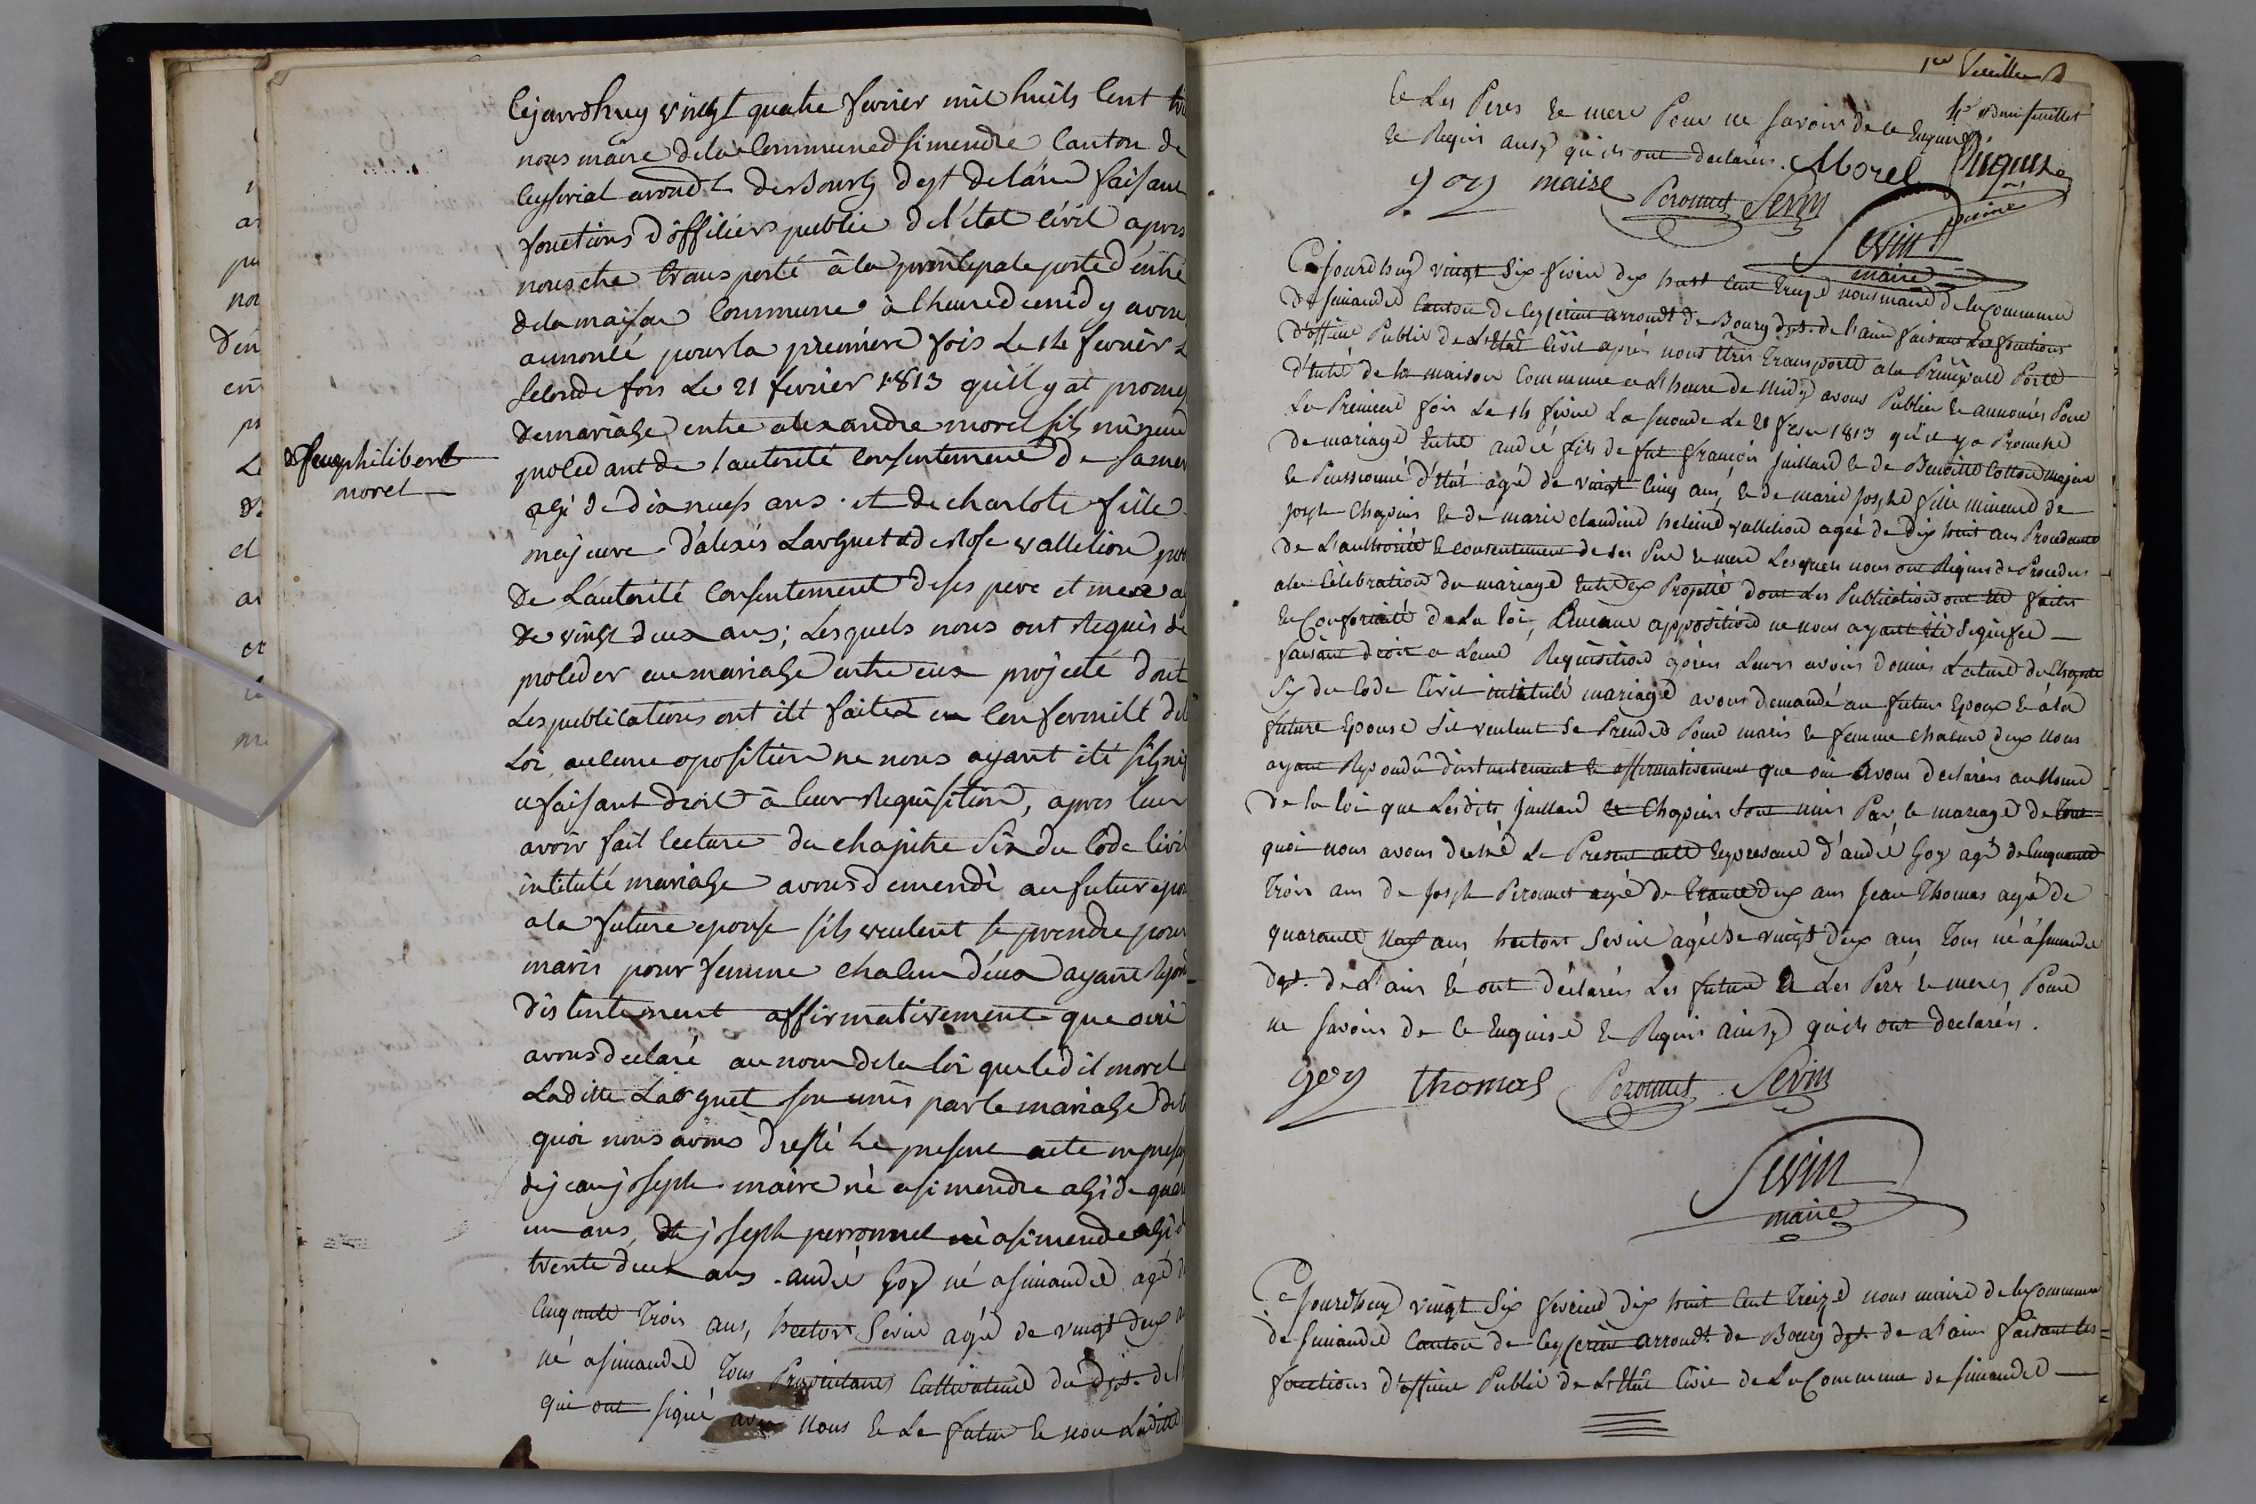 Cejourdhuy vingt quatre fevrier mil huits Cent
nous maire dela Commune d simendre Canton de
Ceyseriat arondt de Bourg dept de láin faisant
fonctions d'officier public del'état Civil apres
nous etre transporté à la principale porte d'entré
dela maison Commune à lheure demid y avon
annoncé pour la première fois Le 14 fevrier
seconde fois Le 21 fevrier 1813 quil y at promes
demariage entre alexandre morel fils mineur
de feu philibert
morel
procedant de l'autorité consentement de sa mer
agé de dix neufs ans et de charlote fille
majeure d'alexis Larguet & de Rose vallelion pro
De L'autorité Consentement deses pere et mere a
de vingt deux ans; Lesquels nous ont Requis de
proceder au mariage entre eux projeté dont
Les publications ont été faites en Conformité del
Loi, aucune oposition ne nous ayant été signif
e faisant droit à leur Requisition, apres leur
avoir fait lecture du chapitre Six du Code Civil
intitulé mariage avons demendé au futur epou
a la future epouse s'ils veulent se prendre pour
maris pour femme chacun d'eux ayant Repon
distentement affirmativement que oui
avons declaré au nom dela loi que ledit morel
Laditte Larguet son unis par le mariage de
quoi nous avons dressé Le present acte en presen
de jean joseph maire né a simendre agé de quar
un ans, de joseph perronnet né a simendre agé d
trente deux ans . andré Goy né a simandre agé d
Cinquante trois ans, hector Servin agé de vingt deux
né a simandre tous Proprietaires Cultivateurs du dept. de l
qui ont signé avec nous & Le futur & non Laditte
1er feuillet
4e Demi feuillet
& Les Peres & mere Pour ne savoir de ce Enquis
& Requis ausy qu'ils ont declarés. Morel
goy maire Peronnet Servin
Servin
maire
Cejourd'huy vingt six fevrier dix huit Cent treize nous maire de la Commune
De simandre Canton de Ceyserias arroudt de Bourg dept. de l'ain faisant Les fonctions
d'officier Public de L'Etat Civil aprés nous être transporté a la Principale Porte
d'entré de la maison Commune a L'heure de Midy avons Publier & annoncés Pour
La Premiere fois Le 14 fevrier La seconde Le 21 fevrier 1813 qu'il y a Promesse
de mariage Entre andré fils de fut françois juillard & de Benoitte Cottard majeur
& Pensionné d'Etat agé de vingt Cinq ans, & de marie josephe fille mineure de
joseph Chapuis & de marie claudine helene vallelion agée de dix huit ans Procedante
de L'authorité & consentement de ses Pere & mere Lesquels nous ont Requis de Proceder
a la Célebration du mariage Entr'Eux Projetté dont Les Publications ont été faites
En Conformité de La loi, Aucune apposition ne nous ayant été Signifiee
faisant droit a Leur Requisition aprés Leurs avoir donnés Lecture du Chapitre
Six du Code Civil intitulé mariage avons demandé au futur Epoux & à la
future Epouse S'il veulent se Prendre Pour maris & femme chacun d'eux nous
ayant Repondû distintement & affirmativement que oui Avons declarés au Nom
de la loi que Lesdits juillard & Chapuis sont unis Par le mariage de tout
quoi nous avons dressé Le Present acte En presence d'andré Goy agé de Cinquante
trois ans de joseph Peronnet agé de trante deux ans Jean Thomas agé de
quarante Neuf ans hector Servin agé de vingt deux ans Tous né à simandre
dept. de L'ain & ont déclarés Les future & Les Pere & meres Pour
ne savoir de ce Enquise & Requis ainsy qu'ils ont declarés.
goy thomas Peronnet Servin
Servin
maire
Cejourd'huy vingt six fevrier dix huit Cent treize nous maire de la Commune
de simandre Canton de Ceyserias arroudt. de Bourg dept. de L'ain faisant les
fonctions d'officier Public de L'Etat Civil de La Commune de simandre